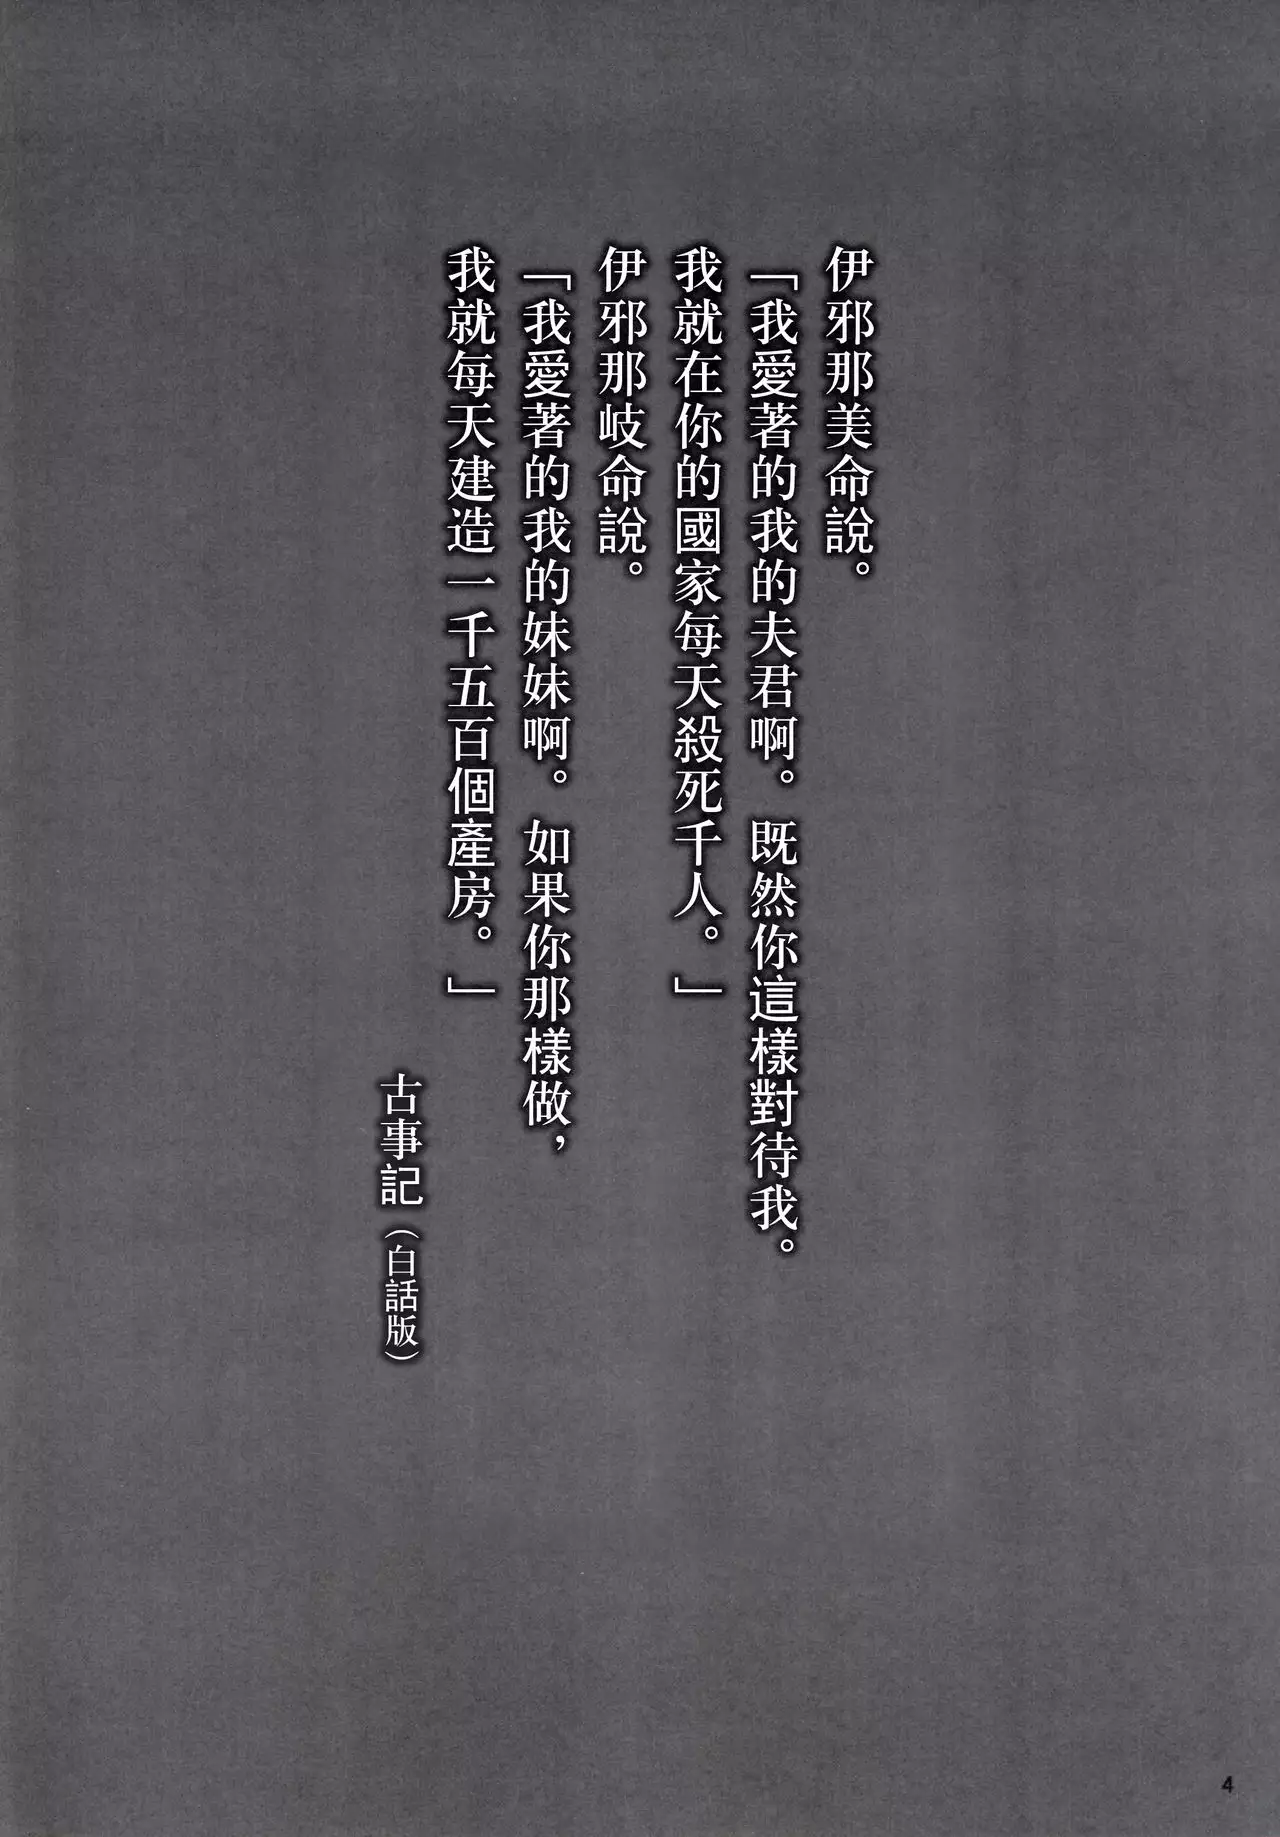 伊邪那美命說。
「我愛著的我的夫君啊。既然你這樣對待我。
我就在你的國家每天殺死千人。」
伊邪那岐命說。
「我愛著的我的妹妹啊。如果你那樣做，
我就每天建造一千五百個產房。」
古事記（白話版）
4